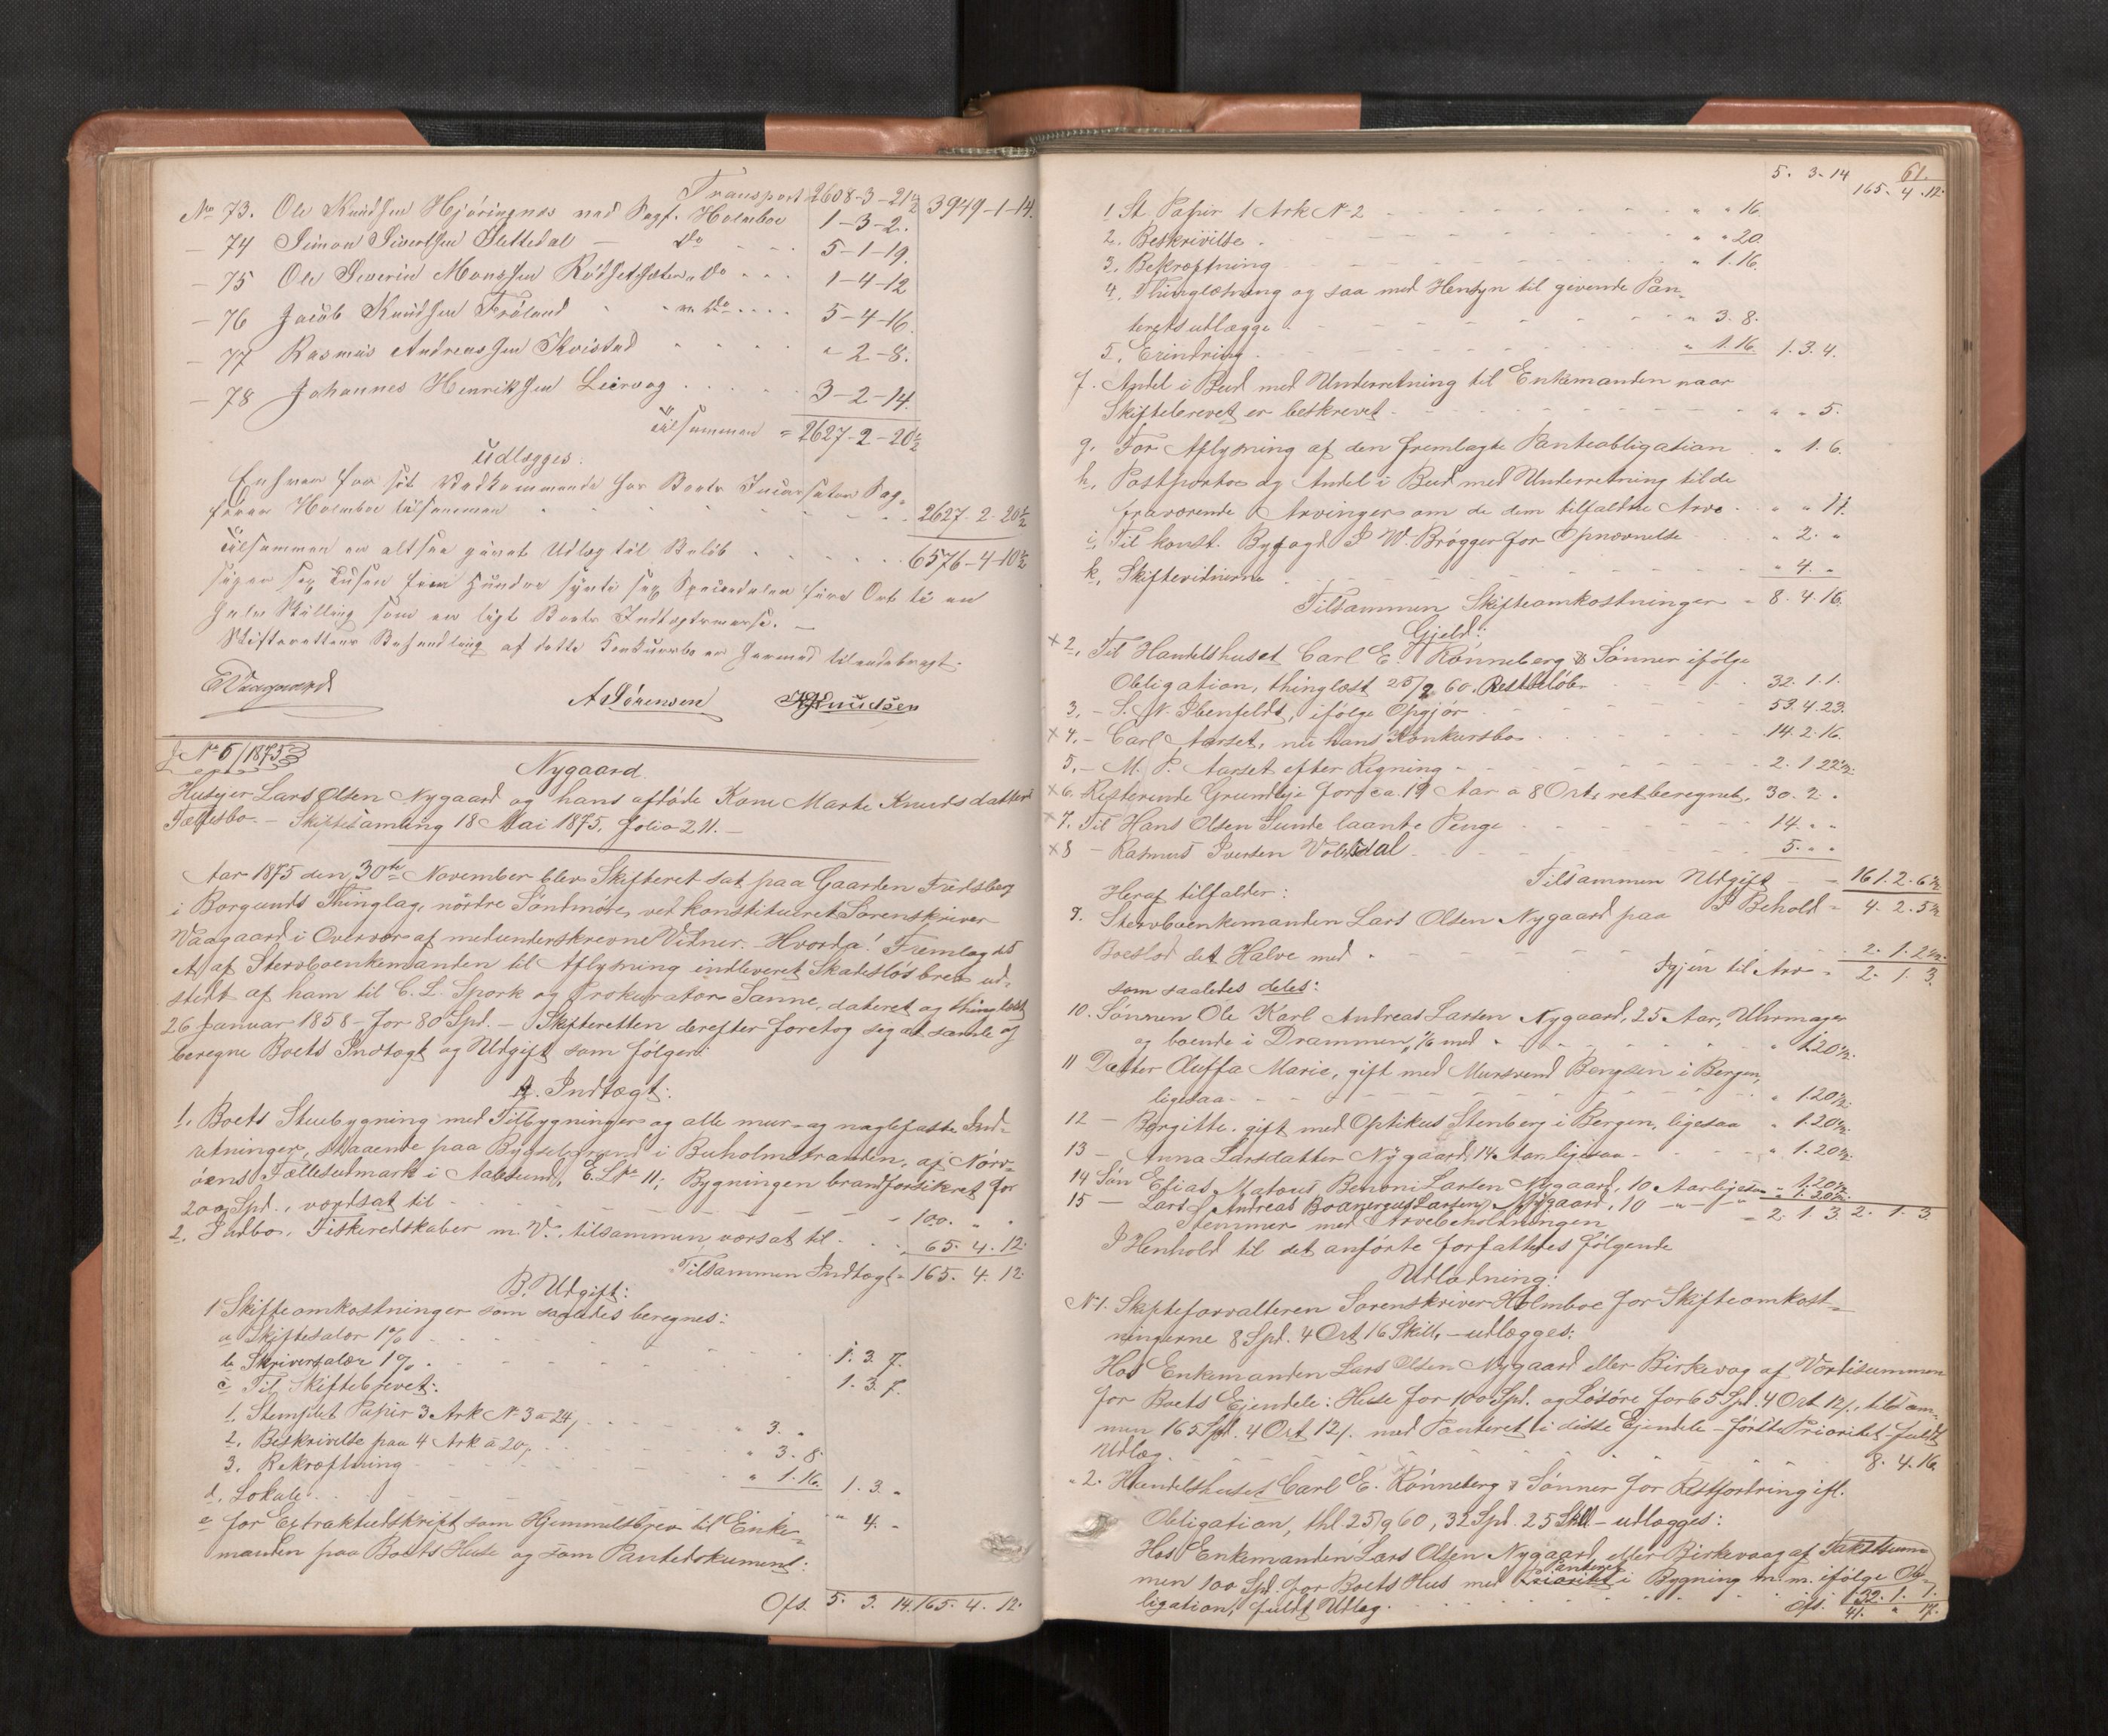 Transport 2608-3-21½ 3949-1-14.
No 73. Ole Knudsen Hjøringnes ved Sagf. Holmboe 1-3-2.
- 74 Simon Sivertsen Slettedal - Do 5-1-19.
- 75 Ole Severin Monssen Rødsetsæter " Do 1-4-12
- 76 Jacob Knudsen Frøland " Do 5-4-16.
- 77 Rasmus Andreassen Kvistad " 2-8.
- 78 Johannes Henriksen Leirvog 3-2-14.
Tilsammen = 2627-2-20½
Udlægges.
Enhver for sit Vedkommende hos Boets Incassator Sag-
fører Holmboe tilsammen 2627. 2. 20½
Tilsammen er altsaa gjort Udlæg til Beløb 6576-4-10½
siger sex Tusen fem Hundre sytti sex Speciedaler fire Ort ti en
halv Skilling som er ligt Boets Indtægtsmasse. -
Skifterettens Behandling af dette Konkursbo er hermed tilendebragt.
EVaagaard A Sørensen KKnudsen
J. No 6/1875
Nygaard.
Husejer Lars Olsen Nygaard og hans afdøde Kone Marte Knudsdatters
Fællesbo. - Skiftesamling 18 Mai 1875, folio 211. -
Aar 1875 den 30te November blev Skifteret sat paa Gaarden Fredsberg
i Borgunds Thinglag, nordre Søndmøre, ved konstitueret Sorenskriver
Vaagaard i Overvær af medunderskrevne Vidner. - Hvorda! Fremlagdes
et af Stervboenkemanden til Aflysning indleveret Skadesløsbrev ud-
stedt af ham til C. L. Spork og Prokurator Sanne, dateret og thinglæst
26 Januar 1858 - for 80 Spd. - Skifteretten derefter foretog sig at samle og
beregne Boets Indtægt og Utgift som følger:
A. Indtægt:
1. Boets Stuebygning med Tilbygninger og alle mur- og naglefaste Ind-
retninger, staaende paa Bygselgrund i Buholmstranden, af Nørv-
øens Fællesudmark i Aalesund, E. L No 11; Bygningen brandforsikret for
200 Spd., værdsat til 100. " "
2. Indbo, Fiskeredskaber m. V., tilsammen værsat til 65. 4. 12.
Tilsammen Indtægt = 165. 4. 12
B. Utgift:
1 Skifteomkostninger som saaledes beregnes:
a Skiftesalær 1% 1. 3. 7.
b Skriversalær 1% 1. 3. 7.
c Til Skiftebrevet:
1. Stemplet Papir 3 Ark N 3 a 24 " 3. "
2. Beskrivelse paa 4 Ark a 20 " 3. 8.
3. Bekræftning " 1. 16. 1. 3. "
d. Lokale " 4. "
e for Extraktudskrift som Hjemmelsbrev til Enke-
manden paa Boets Huse og som Pantedokument:
Ofs. 5. 3. 14. 165. 4. 12.
61.
5. 3. 14 165. 4. 12.
1. St. Papir 1 Ark N 2 " " 16.
2. Beskrivelse " " 20.
3. Bekræftning " 1. 16.
4. Thinglæsning og saa med Hensyn til givende Pan-
terets utlægge " 3. 8.
5. Erindring " 1. 16. 1. 3. 4.
f. Andel i Bud med Underretning til Enkemanden naar
Skiftebrevet er beskrevet " " 5.
g. For Aflysning af den fremlagte Panteobligation " 1. 6.
h. Postporto og Andel i Bud med Underretning til de
fraværende Arvinger om de dem tilfaldne Arve " " 11.
i. Til konst. Byfogd P W. Brøgger for Opnævnelse " 2. "
k. Skiftevidnerne " 4. "
Tilsammen Skifteomkostninger = 8. 4. 16.
Gjeld:
x 2. Til Handelshuset Carl E. Rønneberg & Sønner ifølge
Obligation, thinglæst 25/9 60. Restbeløb 32. 1. 1.
3. - S. N. Ibenfeldt, ifølge Opgjør 53. 4. 23.
x 4. - Carl Aarset, nu hans Konkursbo 14. 2. 16.
5. - M. P. Aarset efter Regning 2. 1 22½.
x 6. Resterende Grundleje for ca. 19 Aar a 8 Ort, ret beregnet, 30. 2. "
x 7. Til Hans Olsen Sunde laante Penge 14. " "
x 8 - Rasmus Iversen Volsdal 5. " "
Tilsammen Utgift 161. 2. 6½
I Behold = 4. 2. 5½
Heraf tilfalder:
9. Stervboenkemanden Lars Olsen Nygaard paa
Boeslod det Halve med 2. 1. 2½
Igjen til Arv = 2. 1. 3.
som saaledes deles:
10. Sønnen Ole Karl Andreas Larsen Nygaard, 25 Aar, Uhrmager
og boende i Drammen, 1/6 med " 1.20½.
11 Datter Oluffa Marie, gift med Mursvend Bengsen i Bergen,
ligesaa " 1.20½.
12 - Birgitte, gift med Optikus Stenberg i Bergen, ligesaa " 1.20½.
13 - Anna Larsdatter Nygaard, 14 Aar ligesaa " 1. 20½.
14 Søn Elias Matous Benoni Larsen Nygaard, 10 Aar ligesaa " 1.20½.
15 - Lars Andreas Boanerges Larsen Nygaard, 10 - " - " - " 1.20½.
Stemmer med Arvebeholdningen = 2. 1. 3. 2. 1. 3.
I Henhold til det anførte forfattedes følgende
Utlodning:
N 1. Skifteforvalteren Sorenskriver Holmboe for Skifteomkost-
ningerne 8 Spd. 4 Ort 16 Skill. - utlægges:
Hos Enkemanden Lars Olsen Nygaard eller Birkevog af Værdisummen
for Boets Ejendele: Huse for 100 Spd. og Løsøre for 65 Spd. 4 Ort 12 /, tilsam-
men 165 Spd. 4 Ort 12 /. med Panteret i disse Ejendele - første Prioritet - fuldt
Utlæg 8. 4. 16.
" 2. Handelshuset Carl E. Rønneberg & Sønner for Restfordring ifl.
Obligation, thl. 25/9 60, 32 Spd. 25 Skill - utlægges:
Hos Enkemanden Lars Olsen Nygaard, eller Birkevaag af Takstsum
men 100 Spd. for Boets Hus med Panteret i Bygning m. m. ifølge Ob-
ligation, fuldt Utlæg 32. 1. 1.
Ofs. 41. " 17.